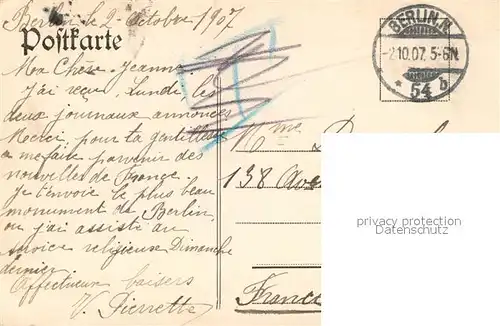 Berlin le 2 Octobre 1907
Postkarte
BERLIN.N.
-2.10.07. 5-6N.
* 54 b
Ma Chère Jeanne
J'ai reçu, Lundi, les
deux journaux annoncés
Merci pour ta gentillesse
a me faire parvenir des
nouvelles de France.
Je t'envoie le plus beau
monument de Berlin,
où j'ai assisté au
service religieuse Dimanche
dernier
Affectueux baisers
V. Pierrette
Mme
138
privacy protection